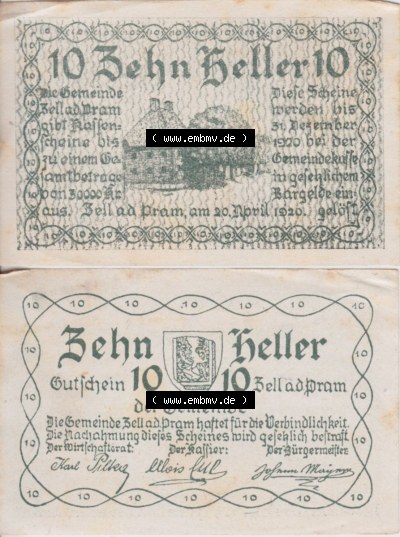 10 Zehn Heller 10
Die Gemeinde
Zell ad Pram
gibt Kassen-
scheine bis
zu einem Ge-
samtbetrage
von 30000 Kr
aus.
Diese Scheine
werden bis
31. Dezember
1920 bei der
Gemeindekasse
in gesetzlichem
Bargelde ein-
gelöst
Zell ad Pram, am 20. April 1920.
( www.embmv.de )
( www.embmv.de )
Zehn Heller
Gutschein 10 10 Zell ad Pram
der Gemeinde
Die Gemeinde Zell ad Pram haftet für die Verbindlichkeit.
Die Nachahmung dieses Scheines wird gesetzlich bestraft.
Der Wirtschaftsrat: Der Kassier: Der Bürgermeister
Karl
Alois
Johann
( www.embmv.de )
( www.embmv.de )